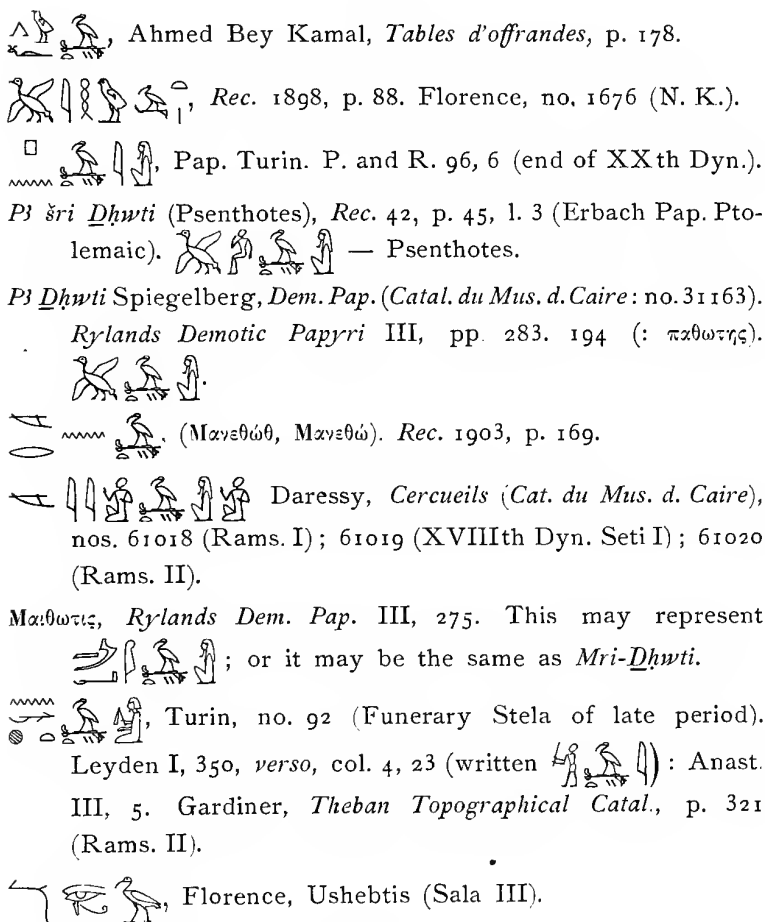 , Ahmed Bey Kamal, Tables d'offrandes, p. 178.
, Rec. 1898, p. 88. Florence, no. 1676 (N. K.).
, Pap. Turin. P. and R. 96, 6 (end of XXth Dyn.).
Pꜣ šri Ḏḥwti (Psenthotes), Rec. 42, p. 45, l. 3 (Erbach Pap. Pto-
lemaic). — Psenthotes.
Pꜣ Ḏḥwti Spiegelberg, Dem. Pap. (Catal. du Mus. d. Caire: no. 31163).
Rylands Demotic Papyri III, pp. 283. 194 (: παθωτης).
.
. (Μανεθώθ, Μανεθώ). Rec. 1903, p. 169.
Daressy, Cercueils (Cat. du Mus. d. Caire),
nos. 61018 (Rams. I); 61019 (XVIIIth Dyn. Seti I); 61020
(Rams. II).
Μαιθωτις, Rylands Dem. Pap. III, 275. This may represent
; or it may be the same as Mri-Ḏḥwti.
, Turin, no. 92 (Funerary Stela of late period).
Leyden I, 350, verso, col. 4, 23 (written ) : Anast.
III, 5. Gardiner, Theban Topographical Catal., p. 321
(Rams. II).
, Florence, Ushebtis (Sala III).